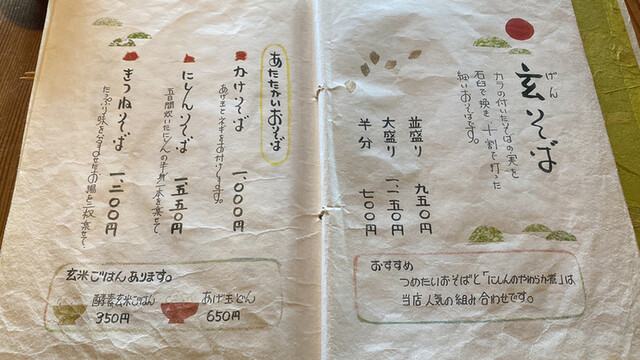 げん
玄そば
カラの付いたそばの実を
石臼で挽き、十割で打った
細いおそばです。
並盛り 九五〇円
大盛り 一、一五〇円
半分 七〇〇円
おすすめ
つめたいおそばと「にしんのやわらか煮」は、
当店人気の組み合わせです。
あたたかいおそば
かけそば 一、〇〇〇円
あげ玉とネギをお付けします。
にしんそば 一、五五〇円
五日間炊いたにしんの半身一本を乗せて
きつねそば 一、二〇〇円
たっぷり味を含ませた
揚を二枚乗せて
玄米ごはんあります。
酵素玄米ごはん
350円
あげ玉どん
650円